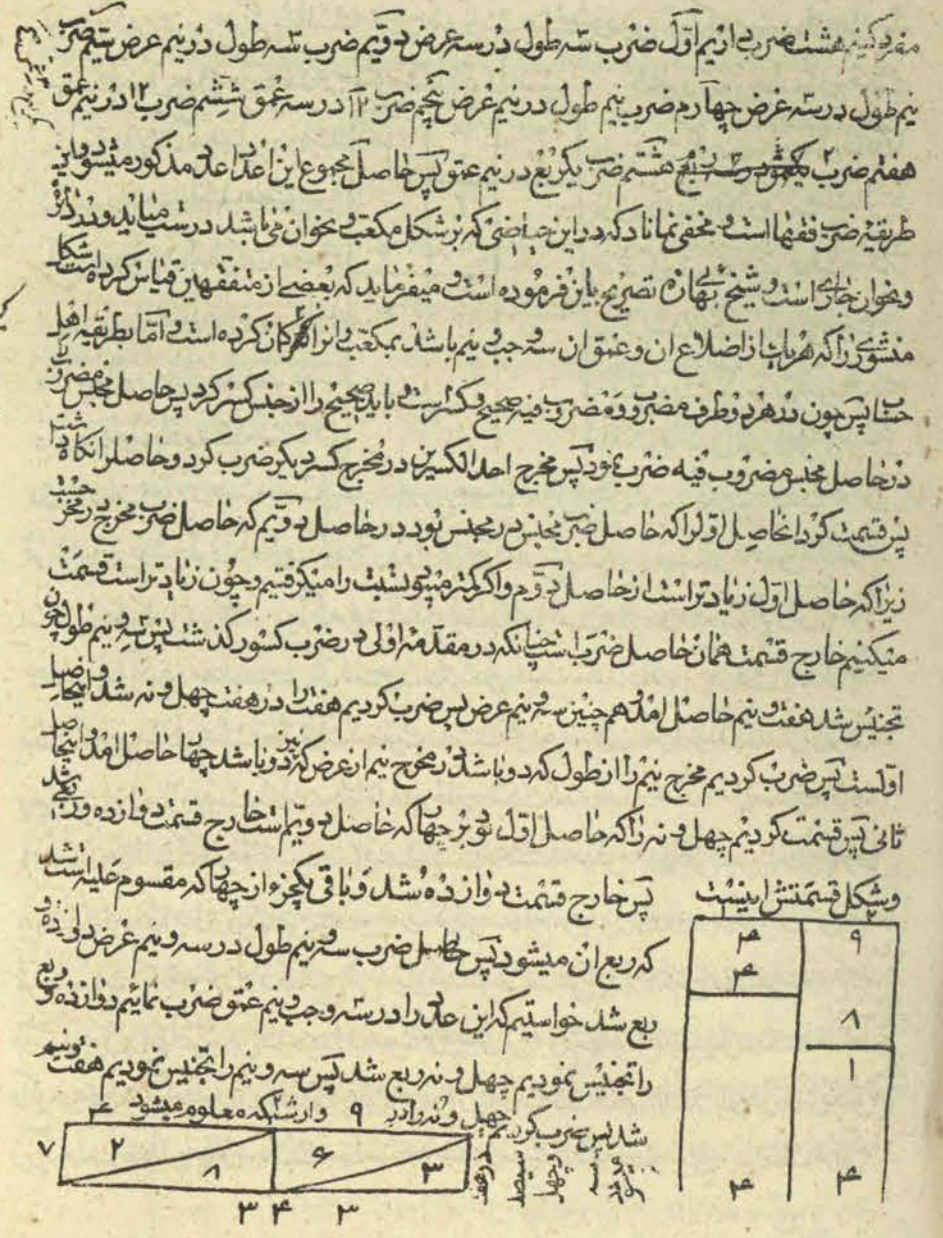 مفرد کنیم هشت ضربی از نیم اول ضرب سه طول در سه عرض دویم ضرب سه طول در نیم عرض سیم ضرب
نیم طول در سه عرض چهارم ضرب نیم طول در نیم عرض پنجم ضرب ۱۲ در سه عمق ششم ضرب ۱۲ در نیم عمق
هفتم ضرب هشتم ضرب یکربع در نیم عمق پس حاصل مجموع این اعداد عدد مذکور میشود و این
طریقه ضرب فقها است و مخفی نماناد که در این حیاضی که بر شکل مکعب و نحو آن می باشد درست میاید و در
و نحو آن جاری است و شیخ بهائی ره تصریح باین فرموده است و میفرماید که بعضی از متفقهین قیاس کرده است شکل
منشوری را که هر یک از اضلاع ان و عمق ان سه وجب و نیم باشد بمکعب و انرا کر کمان کرده است و اما بطریقه اهل
حساب پس چون در هر دو طرف مضروب و مضروب فیه صحیح و کسر است و باید صحیح را از جنس کسر کرد پس حاصل مجنس مضروب
در حاصل مجنس مضروب فیه ضرب نمود پس مخرج احد الکسرین در مخرج کسر دیگر ضرب کرد و حاصل را نگاه داشت
پس قسمت کرد انحاصل اول را که حاصل ضرب مجنس در مجنس بود در حاصل دویم که حاصل ضرب مخرج در مخرج است
زیرا که حاصل اول زیادتر است از حاصل دوم و اگر کمتر میبود نسبت را میگرفتیم و چون زیادتر است قسمت
میکنیم خارج قسمت همان حاصل ضرب است چنانکه در مقدمه اولی در ضرب کسور گذشت پس سه و نیم طول چون
تجنیس شد هفت نیم حاصل امد و هم چنین سه و نیم عرض پس ضرب کردیم هفت را در هفت چهل و نه شد و اینحاصل
اولست پس ضرب کردیم مخرج نیم را از طول که دو باشد در مخرج نیم از عرض که نیز دو باشد چهار حاصل امد و اینحاصل
ثانی پس قسمت کردیم چهل و نه را که حاصل اول بود بر چهار که حاصل دویم است خارج قسمت دوازده و ربعی شد
وشکل قسمتش اینست پس خارج قسمت دوازده شد و باقی یکجزء از چهار که مقسوم علیه است شد
که ربع ان میشود پس حاصل ضرب سه و نیم طول در سه و نیم عرض دوازده و
ربع شد خواستیم که این عدد را در سه وجب و نیم عمق ضرب نمائیم دوازده و ربع
را تجنیس نمودیم چهل و نه ربع شد پس سه و نیم را تجنیس نمودیم هفت و نیم
شد پس ضرب کردیم چهل و نه را در هفت سیصد و چهل و سه میشود
۴ ۹
۴ ۸
۱
۴ ۴
۴ ۹
۷ ۲ ۸ ۶ ۳
۳ ۴ ۳